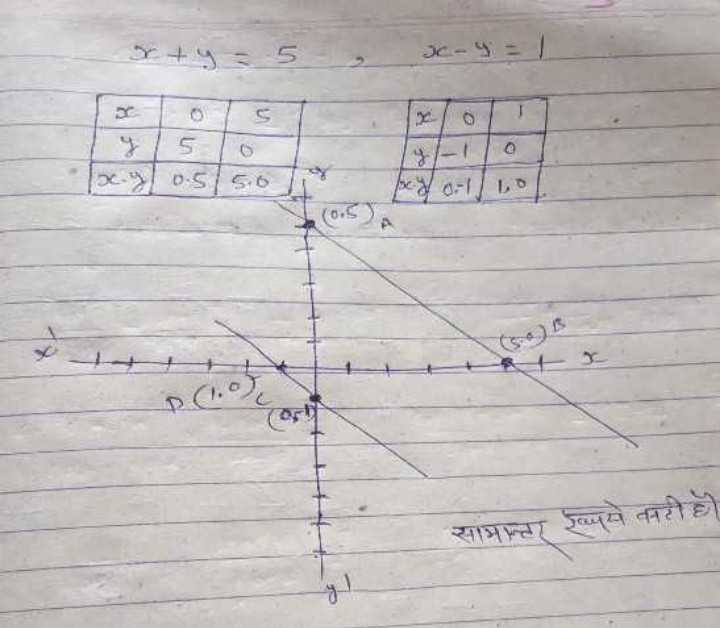 x + y = 5 , x - y = 1
x 0 5
y 5 0
x.y 0.5 5.0
x 0 1
y -1 0
x.y 0.-1 1.0
y
(0.5) A
(5.0) B
x' x
D (1.0) C
y'
सामान्तर नही है